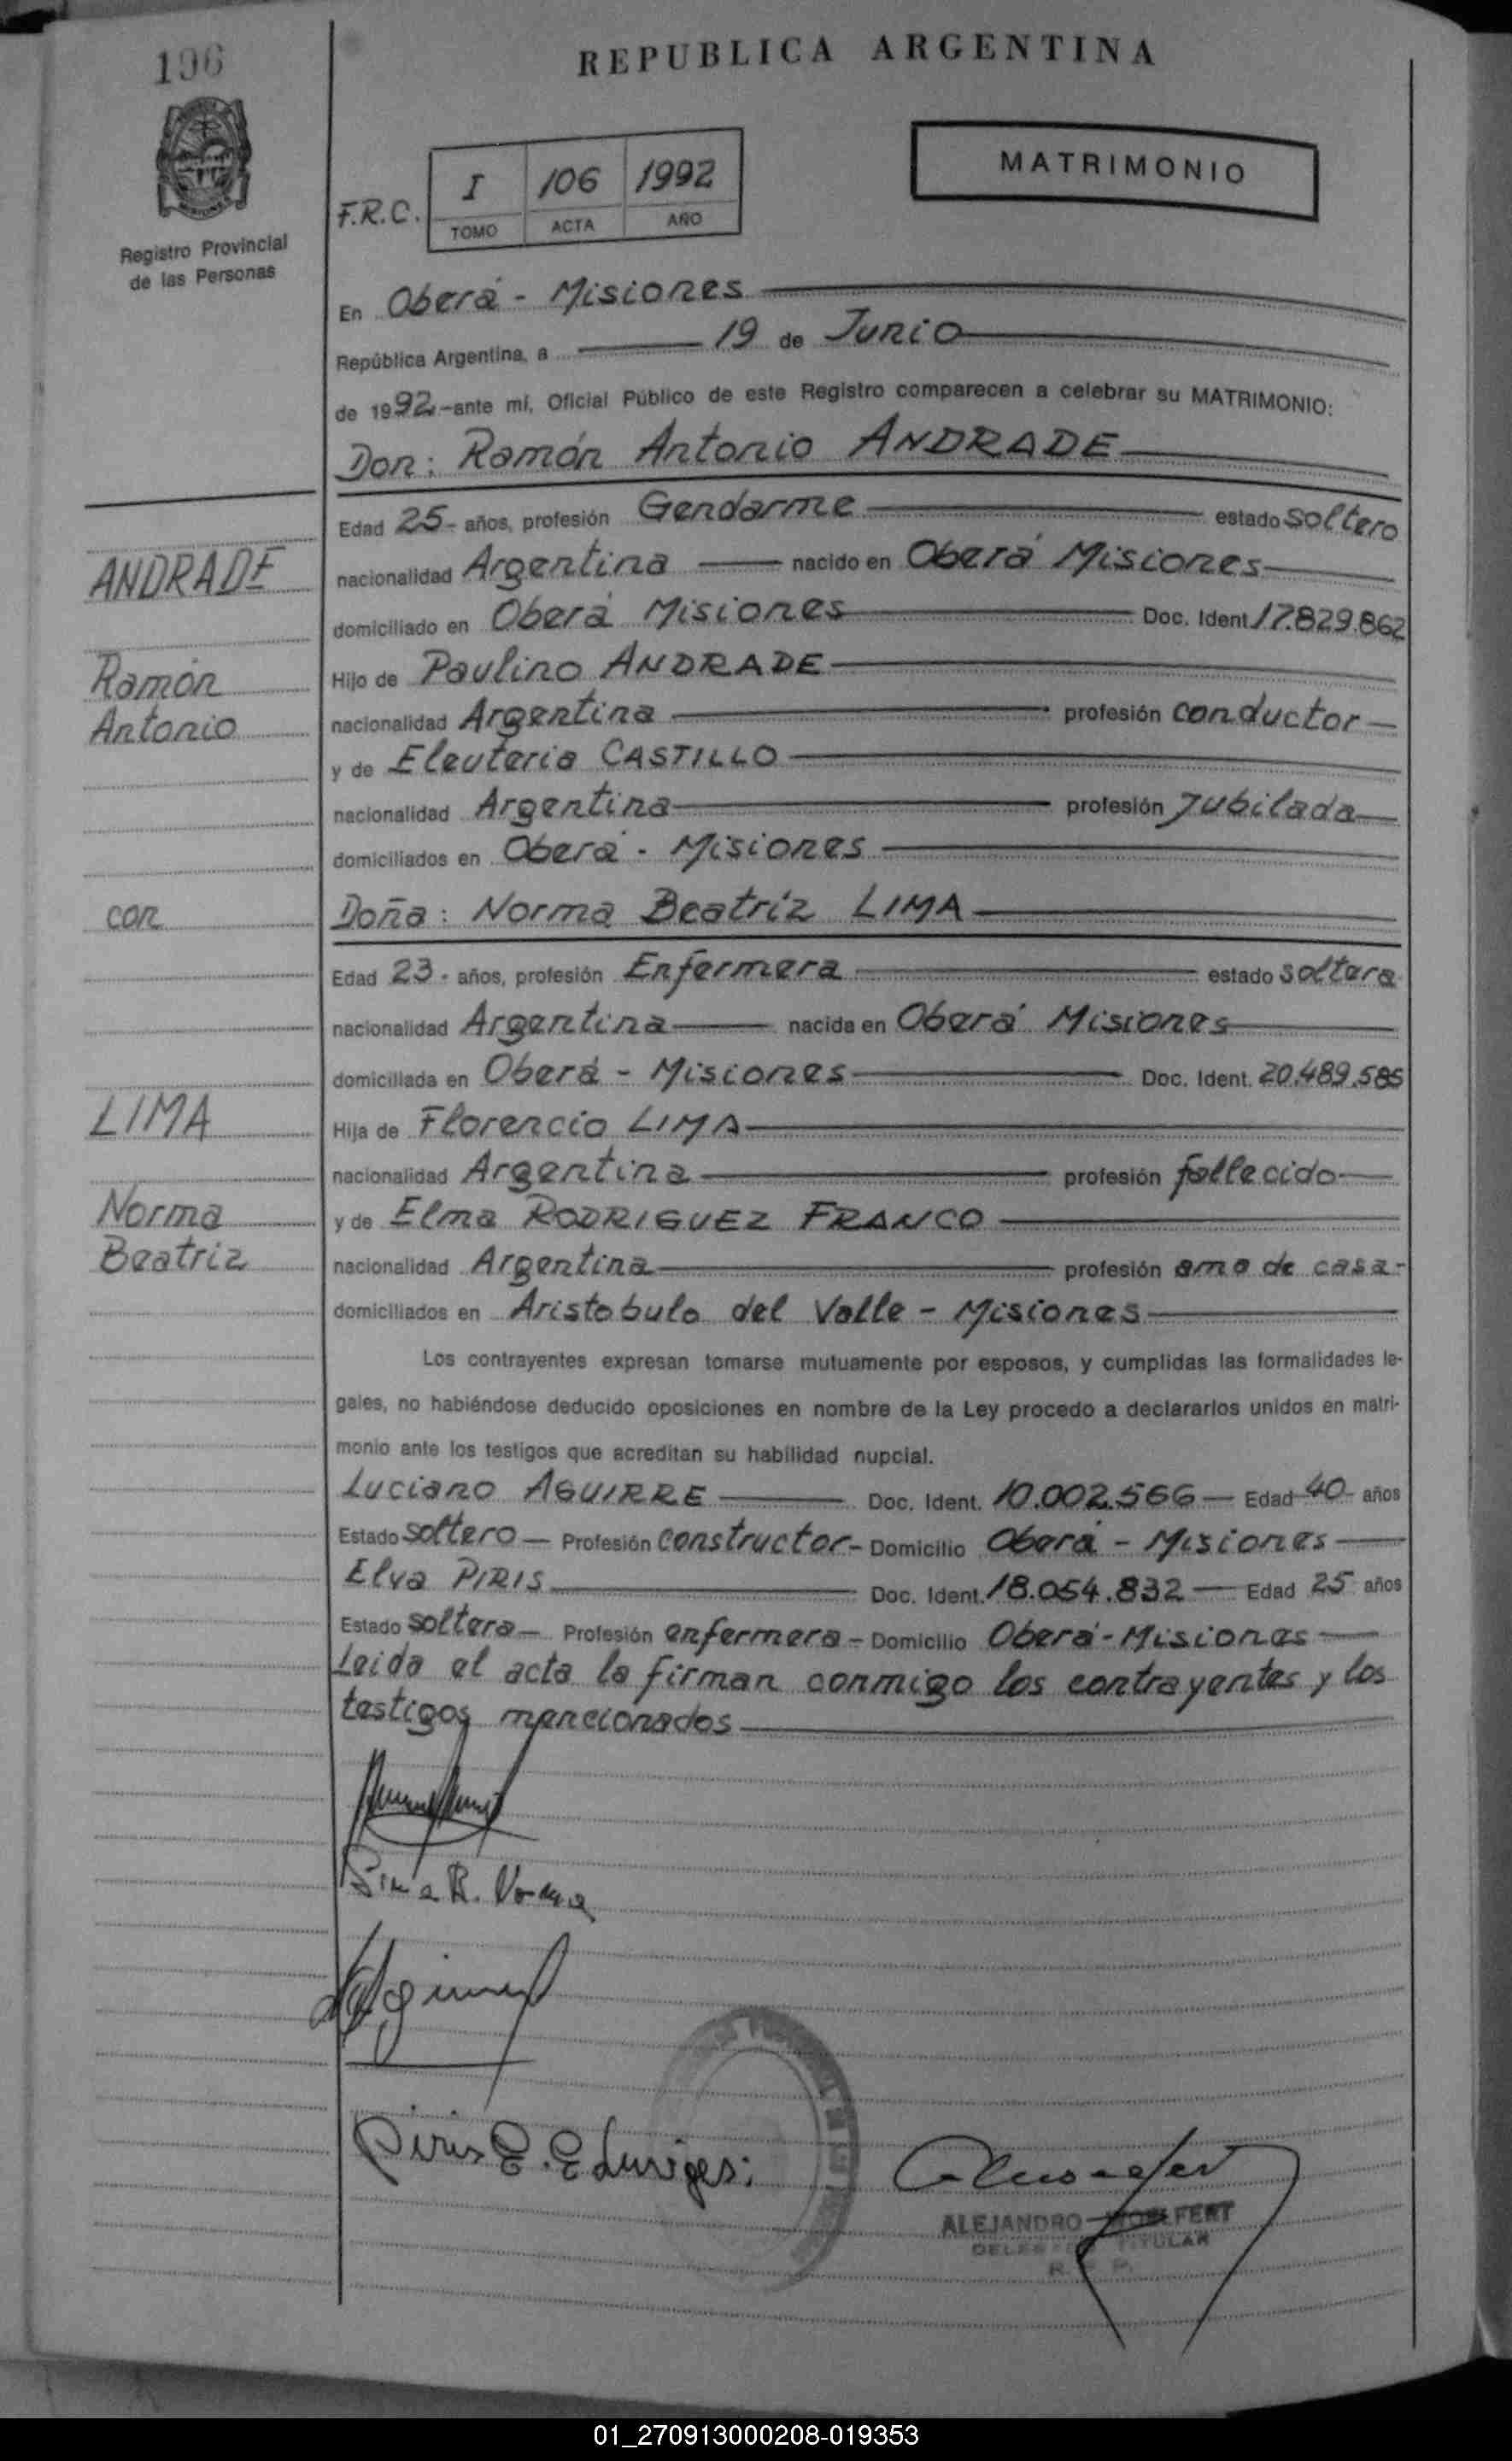 196
REPUBLICA ARGENTINA
MATRIMONIO
F.R.C.
I 106 1992
TOMO ACTA AÑO
Registro Provincial
de las Personas
En Oberá - Misiones
República Argentina, a 19 de Junio
de 1992 -ante mí, Oficial Público de este Registro comparecen a celebrar su MATRIMONIO:
Don: Ramón Antonio ANDRADE
Edad 25- años, profesión Gendarme estado soltero
ANDRADE
nacionalidad Argentina nacido en Oberá Misiones
domiciliado en Oberá Misiones Doc. Ident. 17.829.862
Ramón
Hijo de Paulino ANDRADE
Antonio
nacionalidad Argentina profesión conductor
y de Eleuteria CASTILLO
nacionalidad Argentina profesión Jubilada
domiciliados en Oberá - Misiones
con
Doña: Norma Beatríz LIMA
Edad 23- años, profesión Enfermera estado soltera
nacionalidad Argentina nacida en Oberá Misiones
domiciliada en Oberá - Misiones Doc. Ident. 20.489.585
LIMA
Hija de Florencio LIMA
nacionalidad Argentina profesión fallecido
Norma
y de Elma RODRIGUEZ FRANCO
Beatriz
nacionalidad Argentina profesión ama de casa-
domiciliados en Aristobulo del Valle - Misiones
Los contrayentes expresan tomarse mutuamente por esposos, y cumplidas las formalidades le-
gales, no habiéndose deducido oposiciones en nombre de la Ley procedo a declararlos unidos en matri-
monio ante los testigos que acreditan su habilidad nupcial.
Luciano AGUIRRE Doc. Ident. 10.002.566 Edad 40- años
Estado soltero Profesión constructor- Domicilio Oberá - Misiones
Elva PIRIS Doc. Ident. 18.054.832 Edad 25 años
Estado soltera Profesión enfermera - Domicilio Oberá - Misiones
Leida el acta la firman conmigo los contrayentes y los
testigos mencionados
Lima B. Norma
Piris E. Eduviges.
ALEJANDRO
TITULAR
01_270913000208-019353